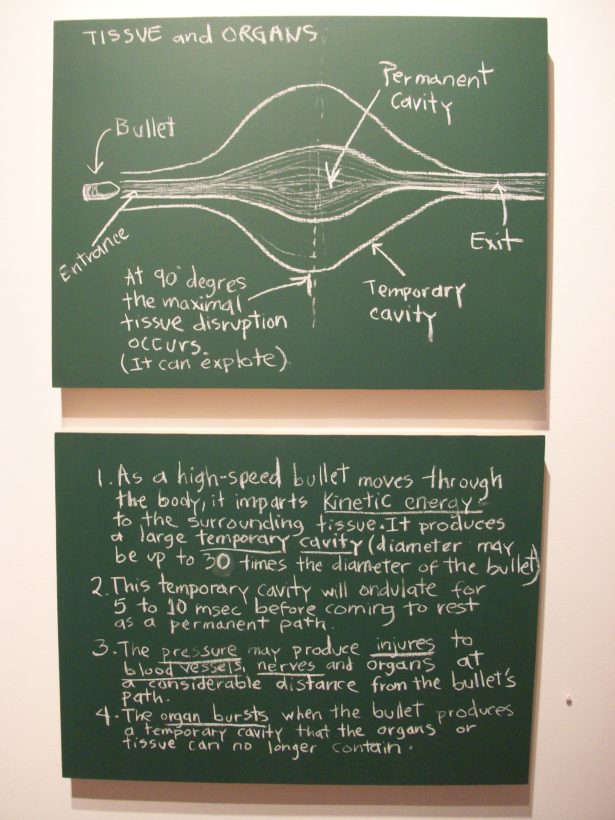 TISSUE and ORGANS
Permanent
cavity
Bullet
Entrance
Exit
At 90° degres
the maximal
tissue disruption
occurs.
(It can explote)
Temporary
cavity
1. As a high-speed bullet moves through
the body, it imparts Kinetic energy
to the surrounding tissue. It produces
a large temporary cavity (diameter may
be up to 30 times the diameter of the bullet)
2. This temporary cavity will ondulate for
5 to 10 msec before coming to rest
as a permanent path.
3. The pressure may produce injures to
blood vessels, nerves and organs at
a considerable distance from the bullet's
path.
4. The organ bursts when the bullet produces
a temporary cavity that the organs or
tissue can no longer contain.